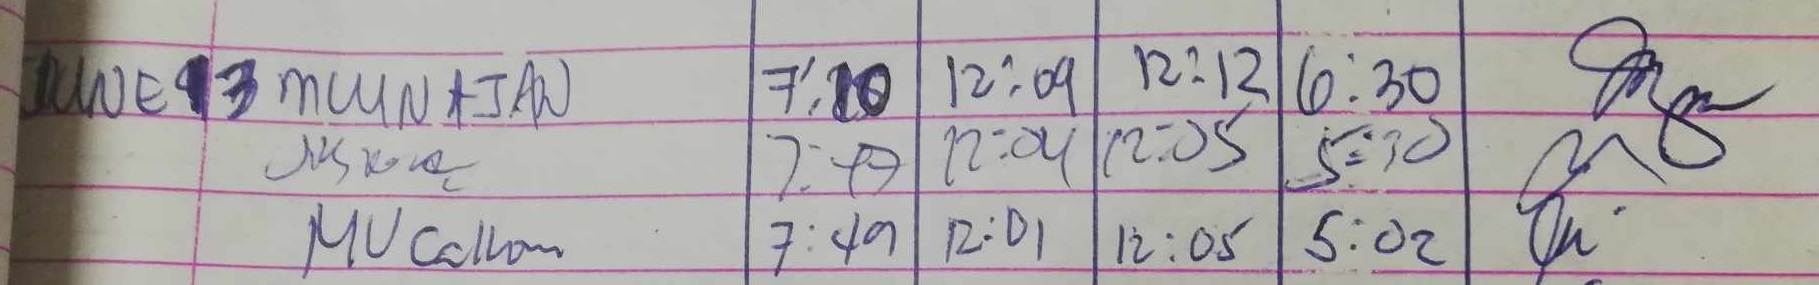 JUNE 13 MUUNAJAN 7:10 12:09 12:12 6:30
7:49 12:04 12:05 5:30
MV 7:49 12:01 12:05 5:02